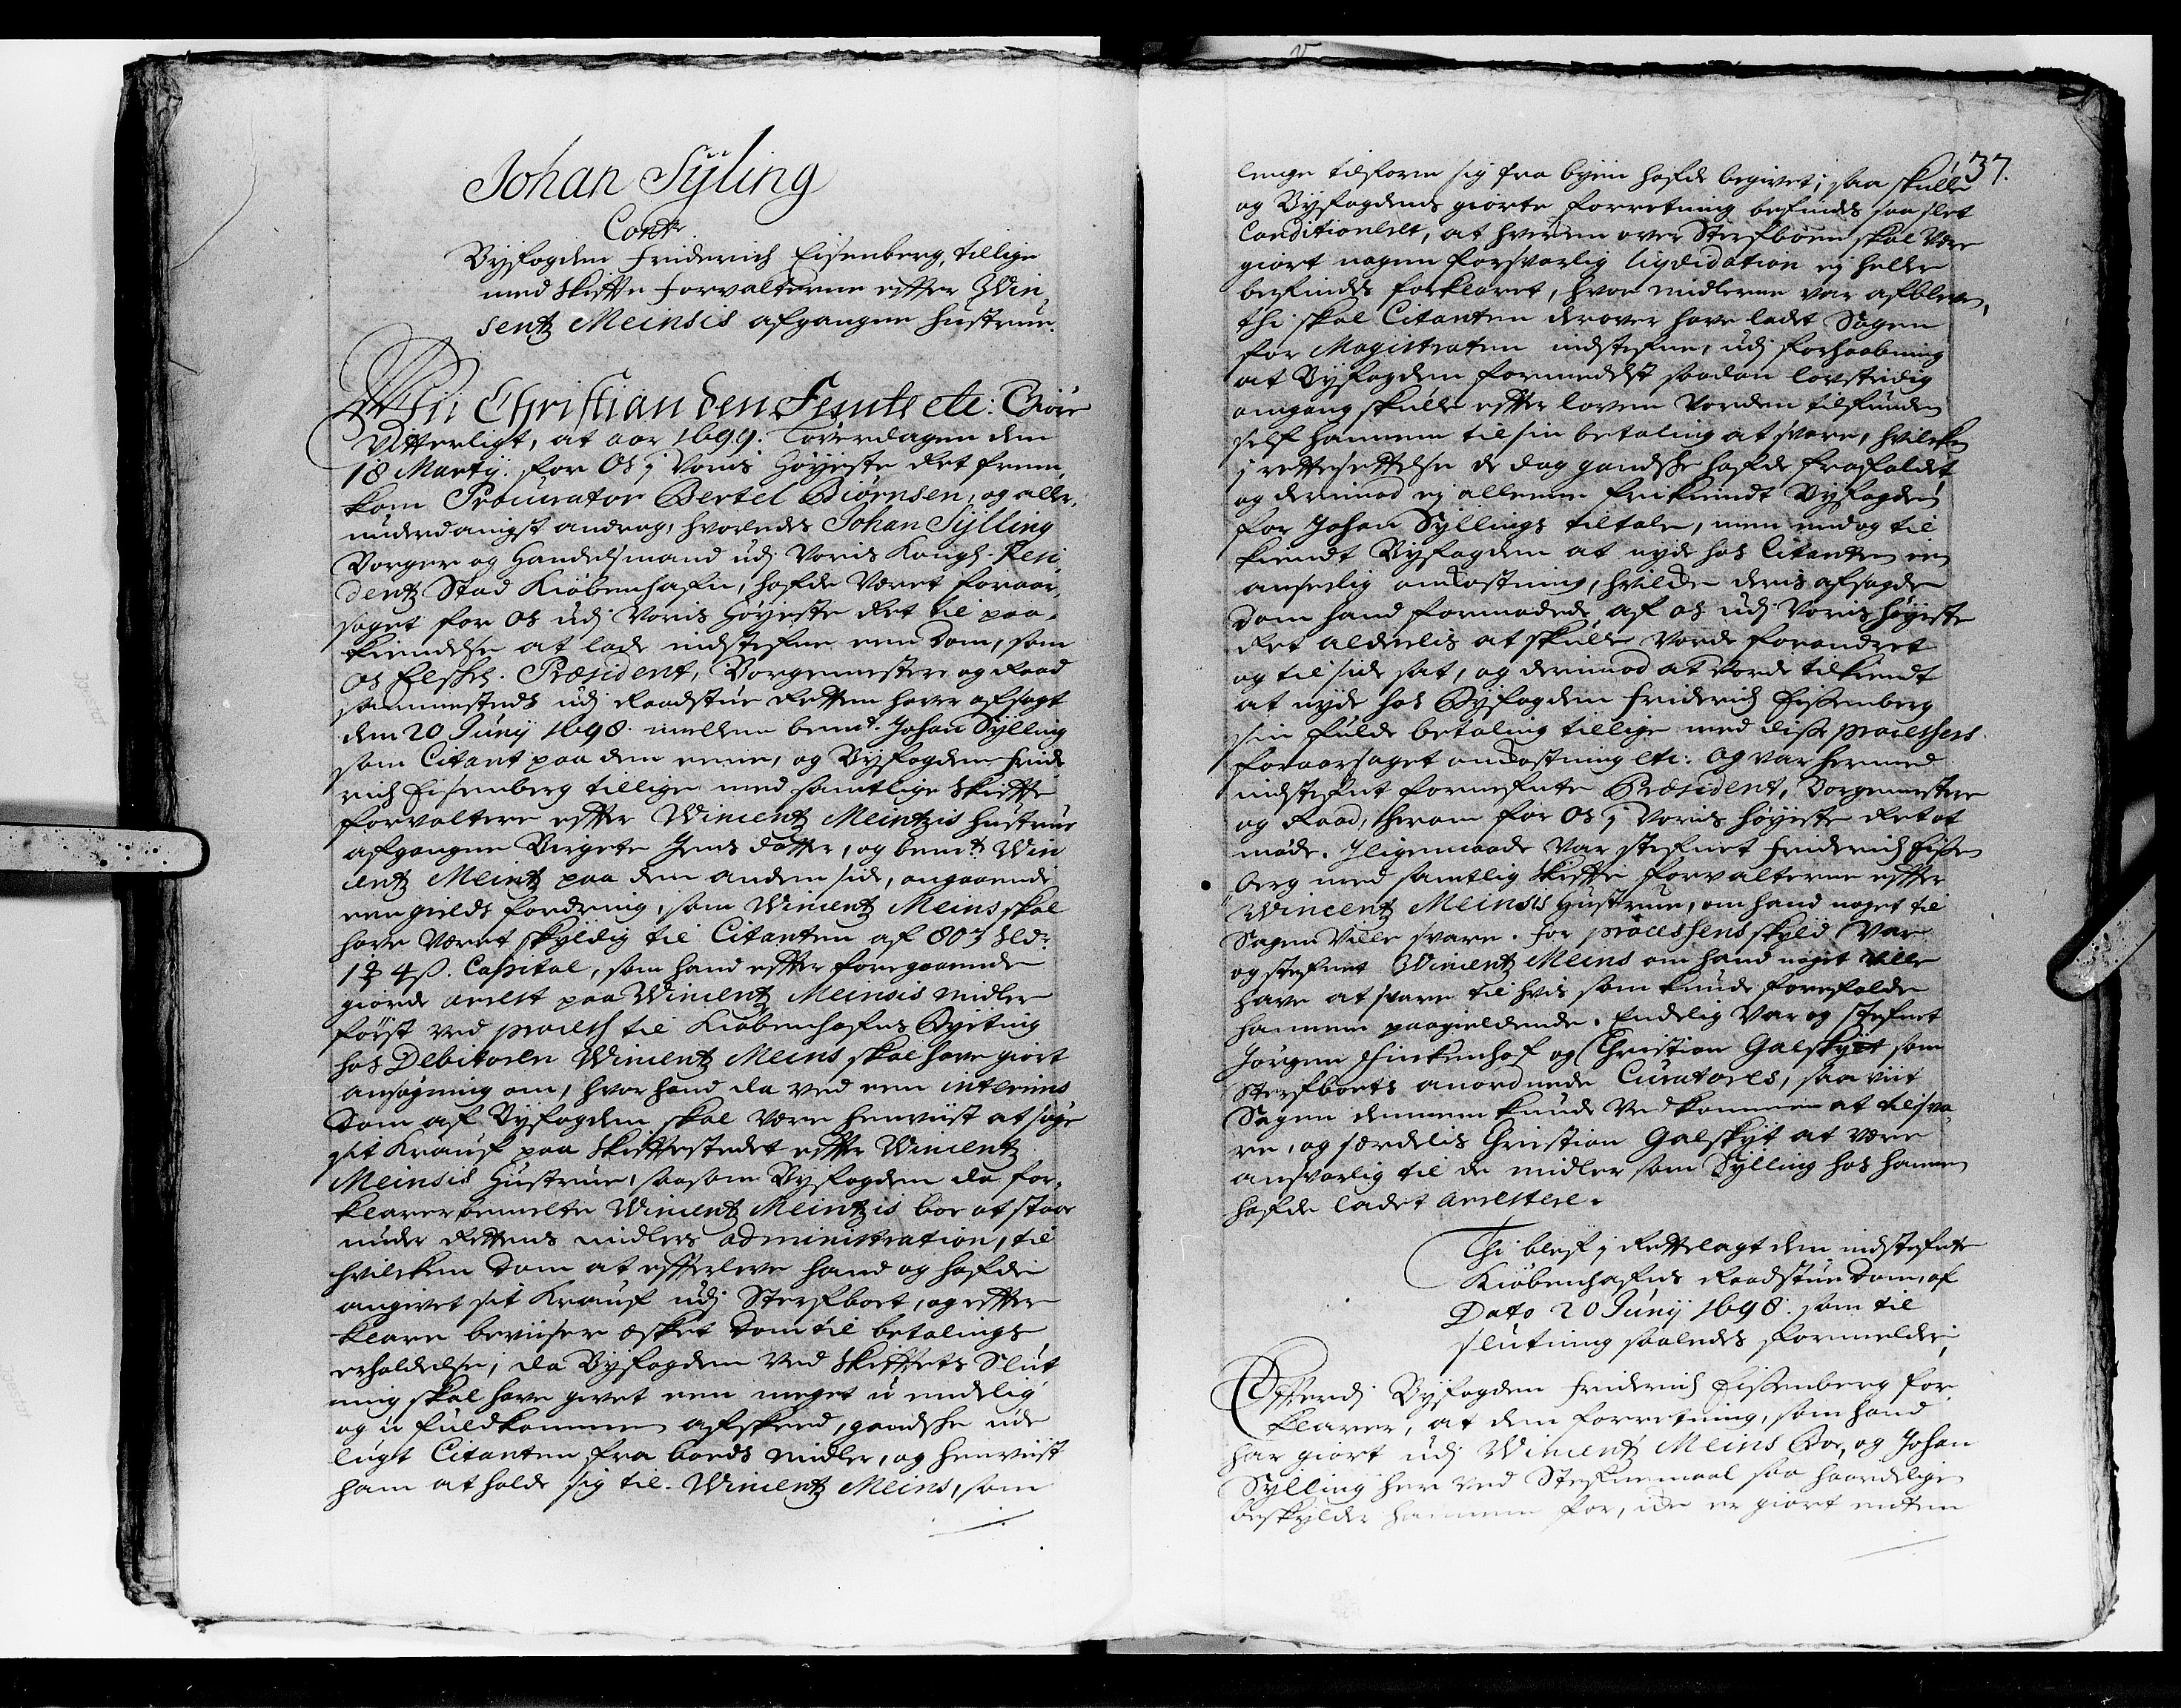 Johan Sÿling
Contr
Byfogden Friderich Eisenberg, tillige
med Skiffte Forvalterne effter Win
sentz Meinses afgangne Hustrue.
Wii Christian den Femte etc: Giöre
Vitterligt, at aar 1699. Löverdagen den
18 Martÿ. for Os j Voris Höyeste Ret frem,
kom Procurator Bertel Biörnsen, og aller,
underdanigst androg, hvorledes Johan Sÿlling
Borger og Handelsmand udj Voris Kongl. Resi
dentz Stad Kiöbenhafn, hafde Været foraar,
saget for Os udj Voris Höyeste Ret til paa,
kiendelse at lade indstefne een Dom, som
Os Elskel. Præsident, Borgemestere og Raad
sammesteds udj Raadstue Retten haver afsagt
den 20 Junÿ 1698. mellem bemt. Johan Sÿlling
som Citant paa den eene, og Byfogden Fride
rich Eisenberg tillige med samtlige Skiffte
forvaltere effter Wincentz Meintzis Hustrue
afgangne Birgete Jens Datter, og bemt. Win
centz Meintz paa den anden side, angaaende
een gields fordring, som Wincentz Meins skal
have Været skyldig til Citanten af 807 Sldr.
1 ₻ 4 ß. Capital, som hand effter foregaaende
giorde arrest paa Wincentz Meinsis Midler
först ved process til Kiöbenhafns Byting
hos Debitoren Wincentz Meins skal have giort
ansögning om, hvor hand da ved een interims
Dom af Byfogden skal være henviist at söge
sit Krauf paa Skifftestedet effter Wincentz
Meinsis Hustrue, saasom Byfogden da for,
klarer bemelte Wincentz Meintzis boe at staae
under Rettens midlers administration, til
hvilcken Dom at effterleve hand og hafde
angivet sit Krauf udj Sterfboet, og effter
klare beviiser æsket Dom til betalings
erholdelse; da Byfogden ved Skifftets Slut
ning skal have givet een meget u endelig
og u fuldkommen afskeed, gandske ude
lugt Citanten fra boeds midler, og henviist
ham at holde sig til Wincentz Meins, som
37.
lenge tilforn sig fra byen hafde begivet; saa skulle
og Byfogdens giorte forretning befindes saa slet
Conditioneret, at hverken over Sterfboen skal være
giort nogen forsvarlig liqvidation ej heller
befindes forklaret, hvor midlerne var afbleven,
thi skal Citanten derover have ladet Sagen
for Magistraten indstefne, udj forhaabning
at Byfogden formedelst saadan lovstridig
omgang skulle effter loven vorden tilfunden
self hannem til sin betaling at svare, hvilcken
j rettesettelse de dog gandske hafde frafaldet
og derimod ej alleene frikiendt Byfogden
for Johan Syllings tiltale, men endog til
kiendt Byfogden at nyde hos Citanten een
anseelig omkostning, hvilcken deris afsagde
Dom hand formodede af Os udj Voris höyeste
Ret aldeelis at skulle vorde forandret
og til side sat, og derimod at vorde tilkiendt
at nyde hos Byfogden Friderich Eissenberg
sin fulde betaling tillige med disse processers
foraarsaget omkostning etc: Og var hermed
indstefnt fornefnte Præsident, Borgemestere
og Raad, herom for Os j Voris höyeste Ret at
möde. Jligemaade var stefnet Friderich Eisen
berg med samtlig Skiffte forvalterne effter
Wincentz Meinsis Hustrue, om hand noget til
Sagen Ville svare. For processens skyld Var
og stefnet Wincentz Meins om hand noget ville
have at svare til hvis som kunde forefalde
hannem paagieldende. Endelig Var og stefnet
Jörgen Finkenhof og Christian Galskyt som
Sterfboets anordnede Curatores, saaviit
Sagen dennem kunde Vedkomme at tilsva
re, og særdelis Christian Galskÿt at være
ansvarlig til de midler som Sylling hos hannem
hafde ladet arrestere.
Thi blef j Rettelagt den indstefnte
Kiöbenhafns Raadstue Dom, af
Dato 20 Junÿ 1698. som til
slutning saaledes formelder;
Efterdj Byfogden Friderich Eissenberg for
klarer, at den forretning, som hand
har giort udj Wincentz Meins Boe, og Johan
Sylling her ved Stefnemaal saa haardelige
beskylder hannem for, icke er giort enten